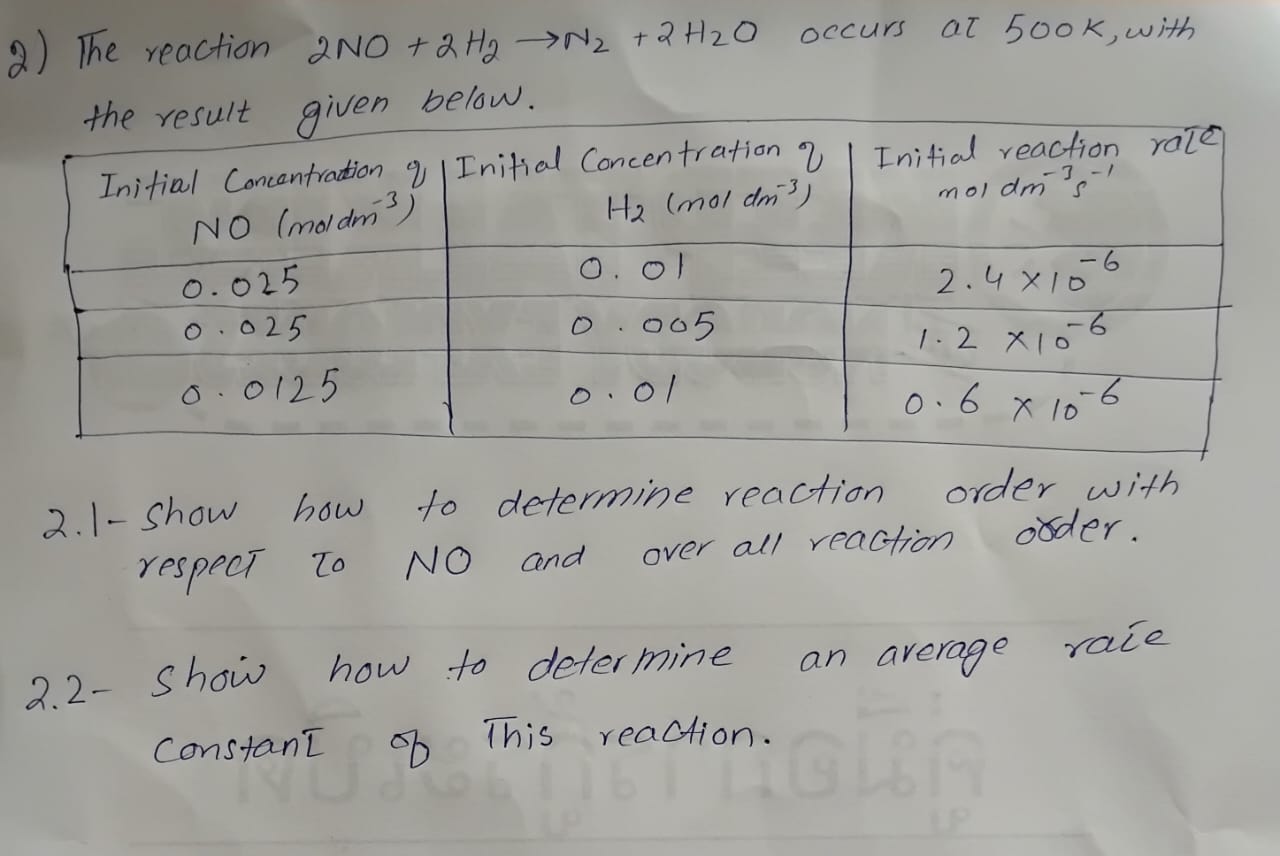 2) The reaction 2NO + 2H₂ → N₂ + 2H₂O occurs at 500K, with
the result given below.
Initial Concentration of NO (mol dm⁻³) | Initial Concentration of H₂ (mol dm⁻³) | Initial reaction rate mol dm⁻³ s⁻¹
0.025 | 0.01 | 2.4 × 10⁻⁶
0.025 | 0.005 | 1.2 × 10⁻⁶
0.0125 | 0.01 | 0.6 × 10⁻⁶
2.1- Show how to determine reaction order with
respect to NO and over all reaction order.
2.2- Show how to determine an average rate
Constant of This reaction.